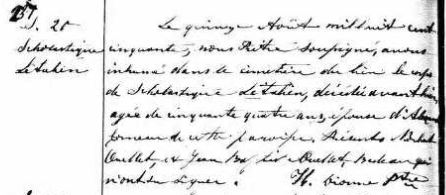 S. 20
Scholastique
Létalien
Le quinze Août mil huit cent
cinquante, nous Prêtre soussigné, avons
inhumé dans le cimetière du lieu le corps
de Scholastique Létalien, décédée avant hier
agée de cinquante quatre ans, épouse d'
de cette paroisse. Présents
Ouellet, et Jean Bte Ouellet, Bedeau qui
n'ont su signer. H. Dionne Ptre